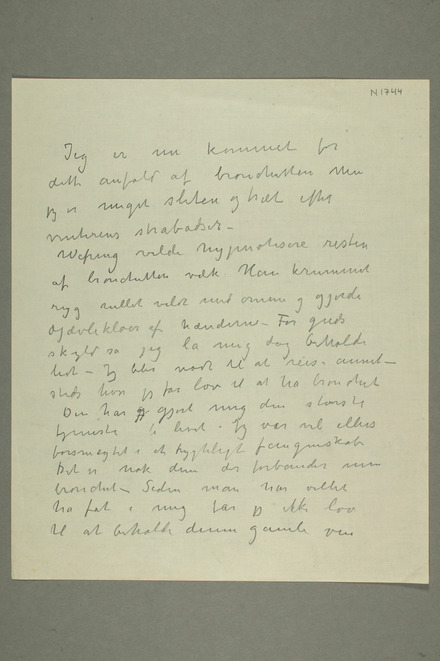 N 1744
Jeg er nu kommet for
dette anfald af bronchitten Men
jeg er meget sliten og træt efter
vinterens strabadser –
Wefring vilde hypnotisere resten
af bronchitten væk Han krummet
ryg rullet vildt med øinene og gjorde
djævlekloer af hænderne – For guds
skyld sa jeg la mig dog beholde
lidt – Jeg blir nødt til at reise annet-
steds hvor jeg får lov til at ha bronchit
Den har jo gjort mig den største
tjeneste i livet. Jeg var vel ellers
forsmægtet i et hyggeligt fængselskab
Det er nok dem der forbander min
bronchit – Siden man har villet
ha fat i mig får jeg ikke lov
til at beholde denne gamle ven